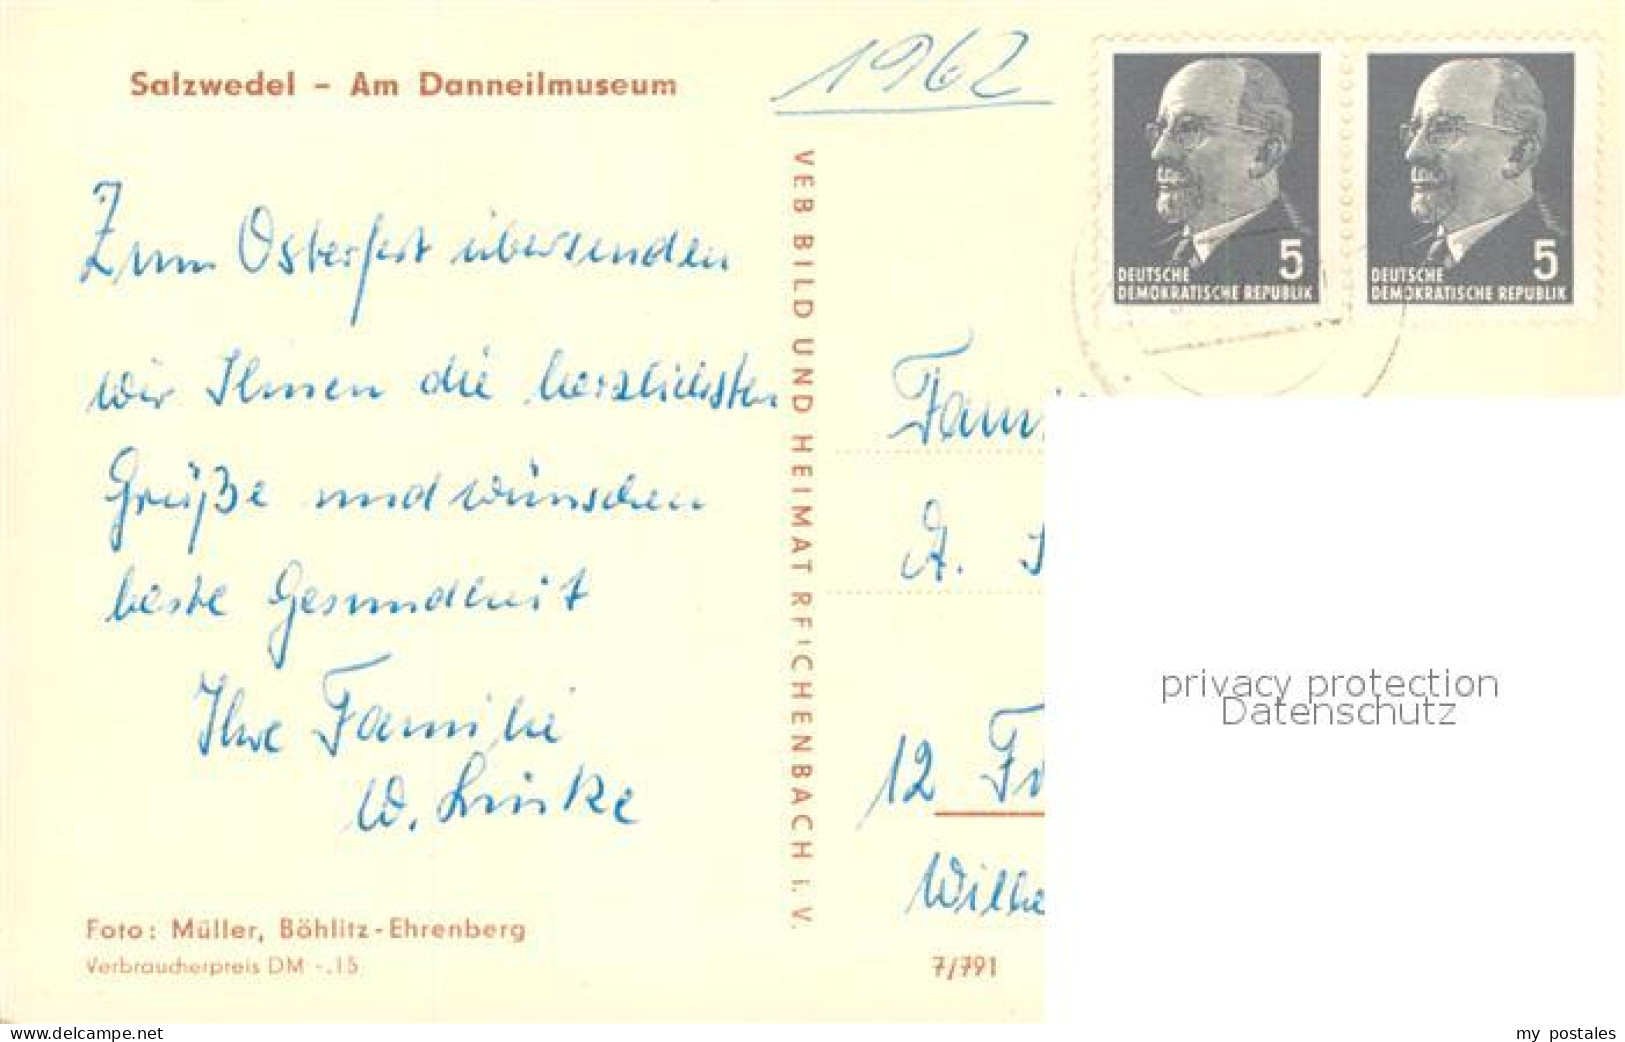 Salzwedel - Am Danneilmuseum
1962
Zum Osterfest übersenden
wir Ihnen die herzlichsten
Grüße und wünschen
beste Gesundheit
Ihre Familie
W. Linke
Foto: Müller, Böhlitz-Ehrenberg
Verbraucherpreis DM -.15
VEB BILD UND HEIMAT REICHENBACH i. V.
5
DEUTSCHE
DEMOKRATISCHE REPUBLIK
5
DEUTSCHE
DEMOKRATISCHE REPUBLIK
Fami
A.
12 F
Wilhe
7/791
privacy protection
Datenschutz
www.delcampe.net
my_postales